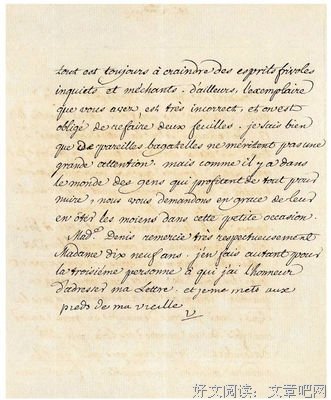 tout est toujours à craindre des esprits frivoles
inquiets et méchants. d'ailleurs, l'exemplaire
que vous avez, est très incorrect, et on est
obligé de refaire deux feuilles. je sais bien
que de pareilles bagatelles ne méritent pas une
grande attention. mais comme il y a dans
le monde des gens qui profitent de tout pour
nuire, nous vous demandons en grace de leur
en ôter les moiens dans cette petite occasion.
Made Denis remercie très respectueusement
Madame dix neuf ans. j'en fais autant pour
la troisième personne à qui j'ai l'honneur
d'adresser ma Lettre. et je me mets aux
pieds de ma vieille
V
好文阅读：文章吧网